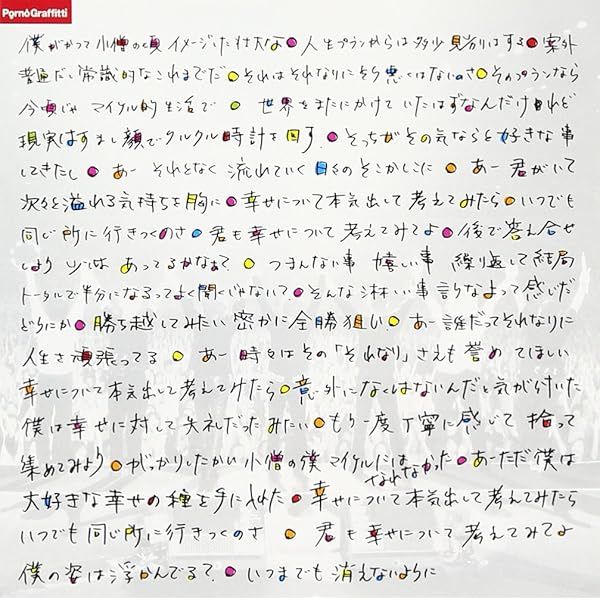 PornoGraffitti
僕がかつて小僧の頃イメージした壮大な●人生プランからは多少見劣りはする●案外
普通だし常識的なこれまでだ●それはそれなりにそう悪くはないのさ●そのプランなら
今頃じゃマイケル的生活で●世界をまたにかけていたはずなんだけれど
現実はすまし顔でクルクル時計を回す●そっちがその気ならと好きな事
してきたし●あー それとなく流れていく日々のそこかしこに●あー 君がいて
次々と溢れる気持ちを胸に●幸せについて本気出して考えてみたら●いつでも
同じ所に行きつくのさ●君も幸せについて考えてみてよ●後で答え合せ
しよう 少しは あってるかなぁ?●つまんない事 嬉しい事 繰り返して結局
トータルで半分になるってよく聞くじゃない?●そんな淋しい事言うなよって感じだ
どうにか●勝ち越してみたい密かに全勝狙い●あー誰だってそれなりに
人生を頑張ってる●あー時々はその「それなり」さえも誉めてほしい
幸せについて本気出して考えてみたら●意外になくはないんだと気が付いた
僕は幸せに対して失礼だったみたい●もう一度丁寧に感じて拾って
集めてみよう●がっかりしたかい小僧の僕マイケルにはなれなかった●あーただ僕は
大好きな幸せの種を手に入れた●幸せについて本気出して考えてみたら
いつでも同じ所に行きつくのさ●君も幸せについて考えてみてよ
僕の姿は浮かんでる?●いつまでも消えないように